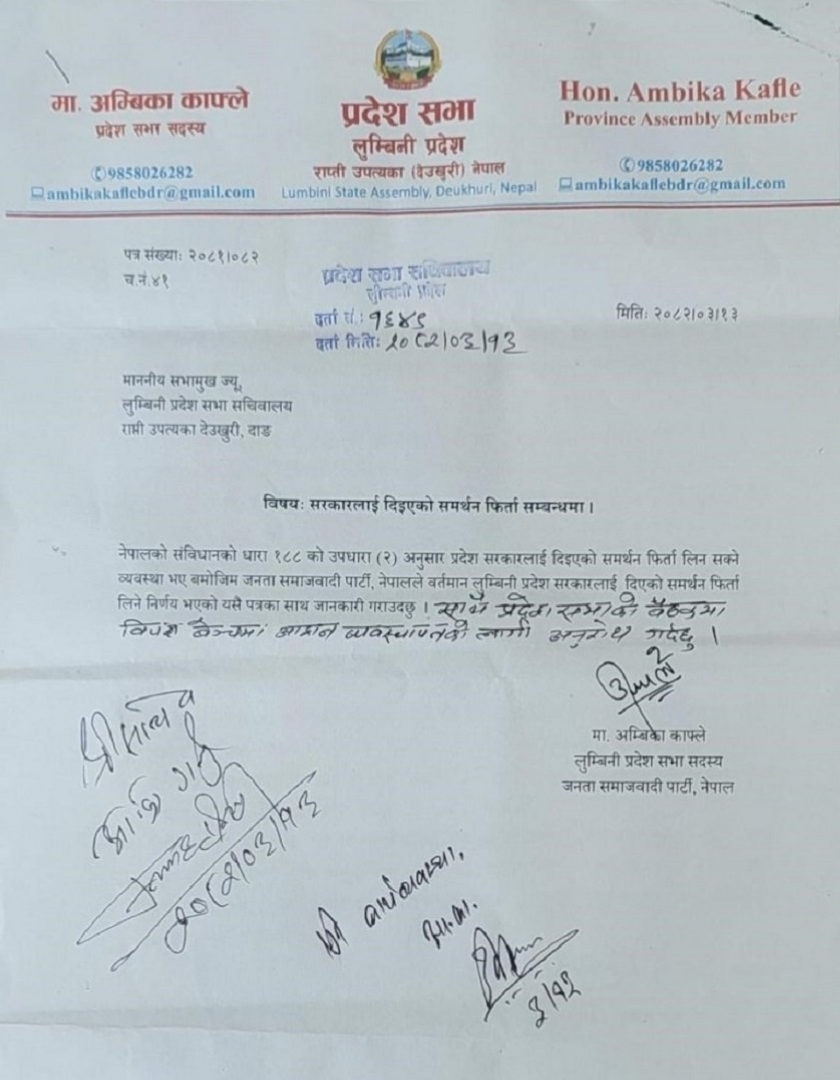 मा. अम्बिका काफ्ले
प्रदेश सभा सदस्य
9858026282
ambikakaflebdr@gmail.com
प्रदेश सभा
लुम्बिनी प्रदेश
राप्ती उपत्यका (देउखुरी) नेपाल
Lumbini State Assembly, Deukhuri, Nepal
Hon. Ambika Kafle
Province Assembly Member
9858026282
ambikakaflebdr@gmail.com
पत्र संख्याः २०८१।०८२
च.नं.४१
प्रदेश सभा सचिवालय
लुम्बिनी प्रदेश
दर्ता सं.: १६४९
दर्ता मितिः २०८२।०३।१३
मितिः २०८२।०३।१३
माननीय सभामुख ज्यू,
लुम्बिनी प्रदेश सभा सचिवालय
राप्ती उपत्यका देउखुरी, दाङ
विषयः सरकारलाई दिइएको समर्थन फिर्ता सम्बन्धमा ।
नेपालको संविधानको धारा १८८ को उपधारा (२) अनुसार प्रदेश सरकारलाई दिइएको समर्थन फिर्ता लिन सक्ने
व्यवस्था भए बमोजिम जनता समाजवादी पार्टी, नेपालले वर्तमान लुम्बिनी प्रदेश सरकारलाई दिएको समर्थन फिर्ता
लिने निर्णय भएको यसै पत्रका साथ जानकारी गराउदछु । साथै प्रदेश सभाको बैठकमा
विपक्ष बेञ्चमा आसन व्यवस्थापनको लागी अनुरोध गर्दछु ।
मा. अम्बिका काफ्ले
लुम्बिनी प्रदेश सभा सदस्य
जनता समाजवादी पार्टी, नेपाल
श्रीमान्
२०८२।०३।१३
श्री कार्यव्यवस्था,
३।१३